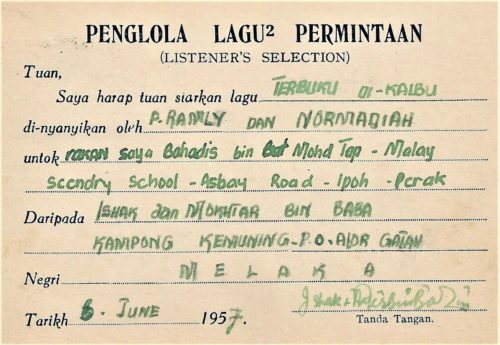 PENGLOLA LAGU² PERMINTAAN
(LISTENER'S SELECTION)
Tuan,
Saya harap tuan siarkan lagu TERBUKU DI-KALBU
di-nyanyikan oleh P. RAMLY DAN NORMADIAH
untok rakan saya Bahadis bin Mohd Tap - Malay
Scendry School - Asbay Road - Ipoh - Perak
Daripada ISHAK dan MOKHTAR BIN BABA
KAMPONG KEMUNING - P.O. ALOR GAJAH
Negri MELAKA
Tarikh 6 - JUNE 1957.
Tanda Tangan.